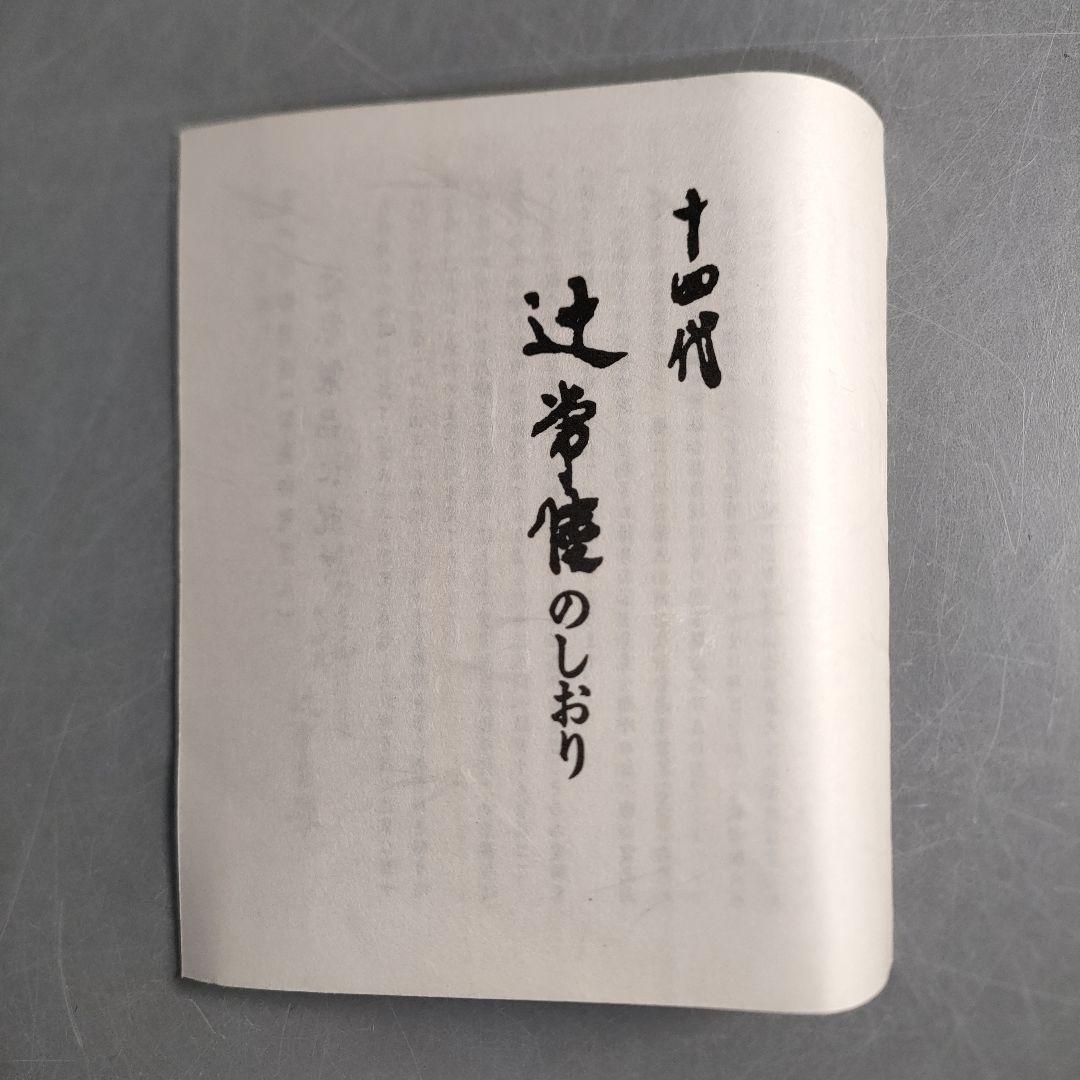 十四代
辻常陸のしおり